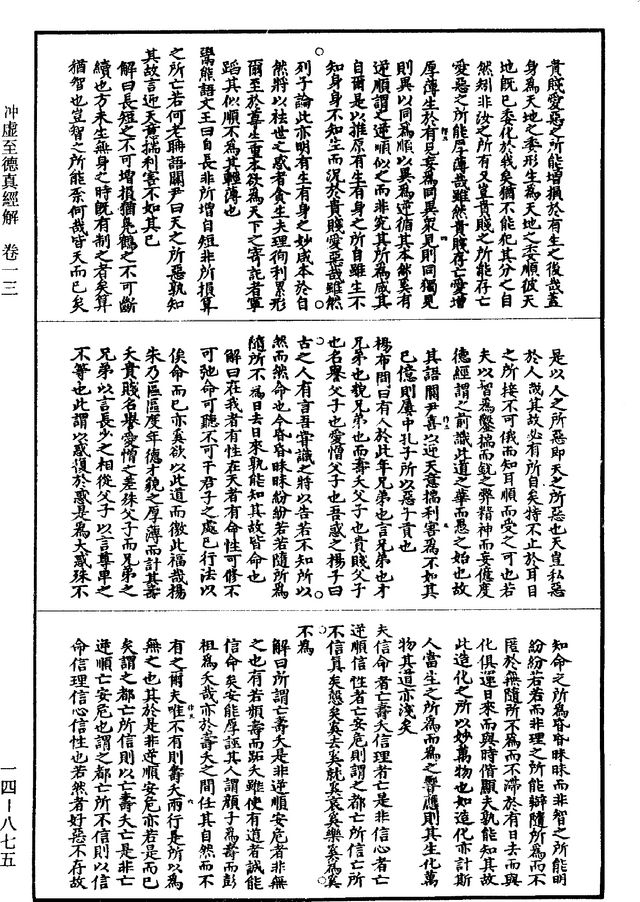 冲虛至德真經解 卷一三
一四-八七五
貴賤愛惡之所能增損於有生之後哉蓋
身為天地之委形生為天地之委順彼天
地既已委化於我矣猶不能犯其分之自
然矧非汝之所有又豈貴賤之所能存亡
愛惡之所能厚薄哉雖然貴賤存亡愛增
厚薄生於有見妄為同異眾見則同獨見
則異以同為順以異為逆循其本然莫有
逆順謂之逆順似之而非究其所為咸其
自爾是以推原有生有身之所自雖生不
知身身不知生而況於貴賤愛惡哉雖然
列子論此亦明有生有身之妙咸本於自
然將以袪世之惑者貪生夫理徇利累形
爾至於尊生重本欲為天下之寄託者寧
蹈其似順不為其輕薄也
鬻熊語文王曰自長非所增自短非所損算
之所亡若何老聃語關尹曰天之所惡孰知
其故言迎天意揣利害不如其已
解曰長短之不可增損猶鳧鶴之不可斷
續也方未生無身之時既有制之者矣算
猶智也豈智之所能柰何哉皆天而已矣
是以人之所惡即天之所惡也天豈私惡
於人哉其故必有所自矣特不止於耳目
之所接不可俄而知耳順而受之可也若
夫以智為鑿揣而銳之弊精神而妄億度
德經謂之前識此道之華而愚之始也故
其語關尹喜以迎天意揣利害為不如其
已億則屢中孔子所以惡子貢也
楊布問曰有人於此年兄弟也言兄弟也才
兄弟也貌兄弟也而壽夭父子也貴賤父子
也名譽父子也愛憎父子也吾惑之楊子曰
古之人有言吾嘗識之將以告若不知所以
然而然命也今昏昏昧昧紛紛若若隨所為
隨所不為日去日來孰能知其故皆命也
解曰在我者有性在天者有命性可修不
可弛命可聽不可干君子之處已行法以
俟命而已亦奚欲以此道而徼此福哉楊
朱乃區區度年德才貌之厚薄而計其壽
夭貴賤名譽愛憎之差殊父子而兄弟之
兄弟以言長少之相從父子以言尊卑之
不等也此謂以惑復於惑是為大惑殊不
知命之所為昏昏昧昧而非智之所能明
紛紛若若而非理之所能辯隨所為而不
匿於無隨所不為而不滯於有日去而與
化俱運日來而與時偕顯夫孰能知其故
此造化之所以妙萬物也如造化亦計斯
人當生之所為而為之響應則其生化萬
物其道亦淺矣
夫信命者亡壽夭信理者亡是非信心者亡
逆順信性者亡安危則謂之都亡所信亡所
不信真矣愨矣奚去奚就奚哀奚樂奚為奚
不為
解曰所謂亡壽夭是非逆順安危者非無
之也有若頻壽而跖夭雖使有道者誠能
信命矣安能厚誣其人謂顏子為壽而彭
祖為夭哉亦於壽夭之間任其自然而不
有之爾夫唯不有則壽夭兩行是所以為
無之也其於是非逆順安危亦若是而已
矣謂之都亡所信則以亡壽夭亡是非亡
逆順亡安危也謂之都亡所不信則以信
命信理信心信性也若然者好惡不存故